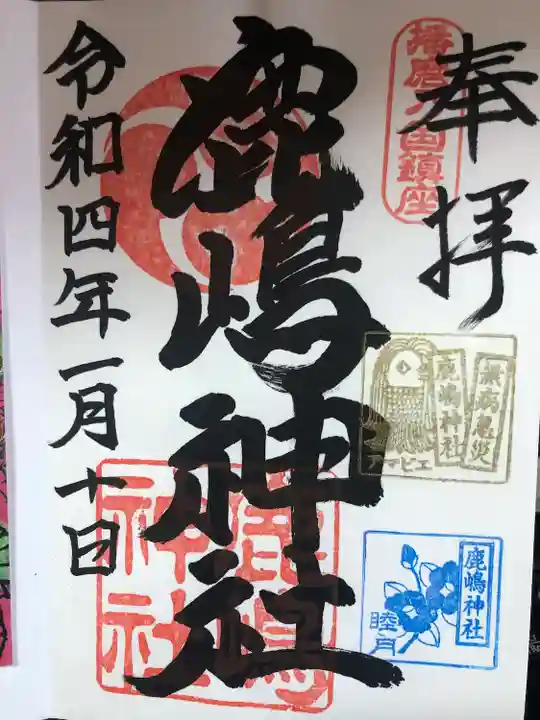 奉拝
播磨ノ国鎮座
鹿嶋神社
鹿嶋
神社
令和四年一月十日
無病息災
鹿嶋神社
アマビエ
鹿嶋神社
睦月